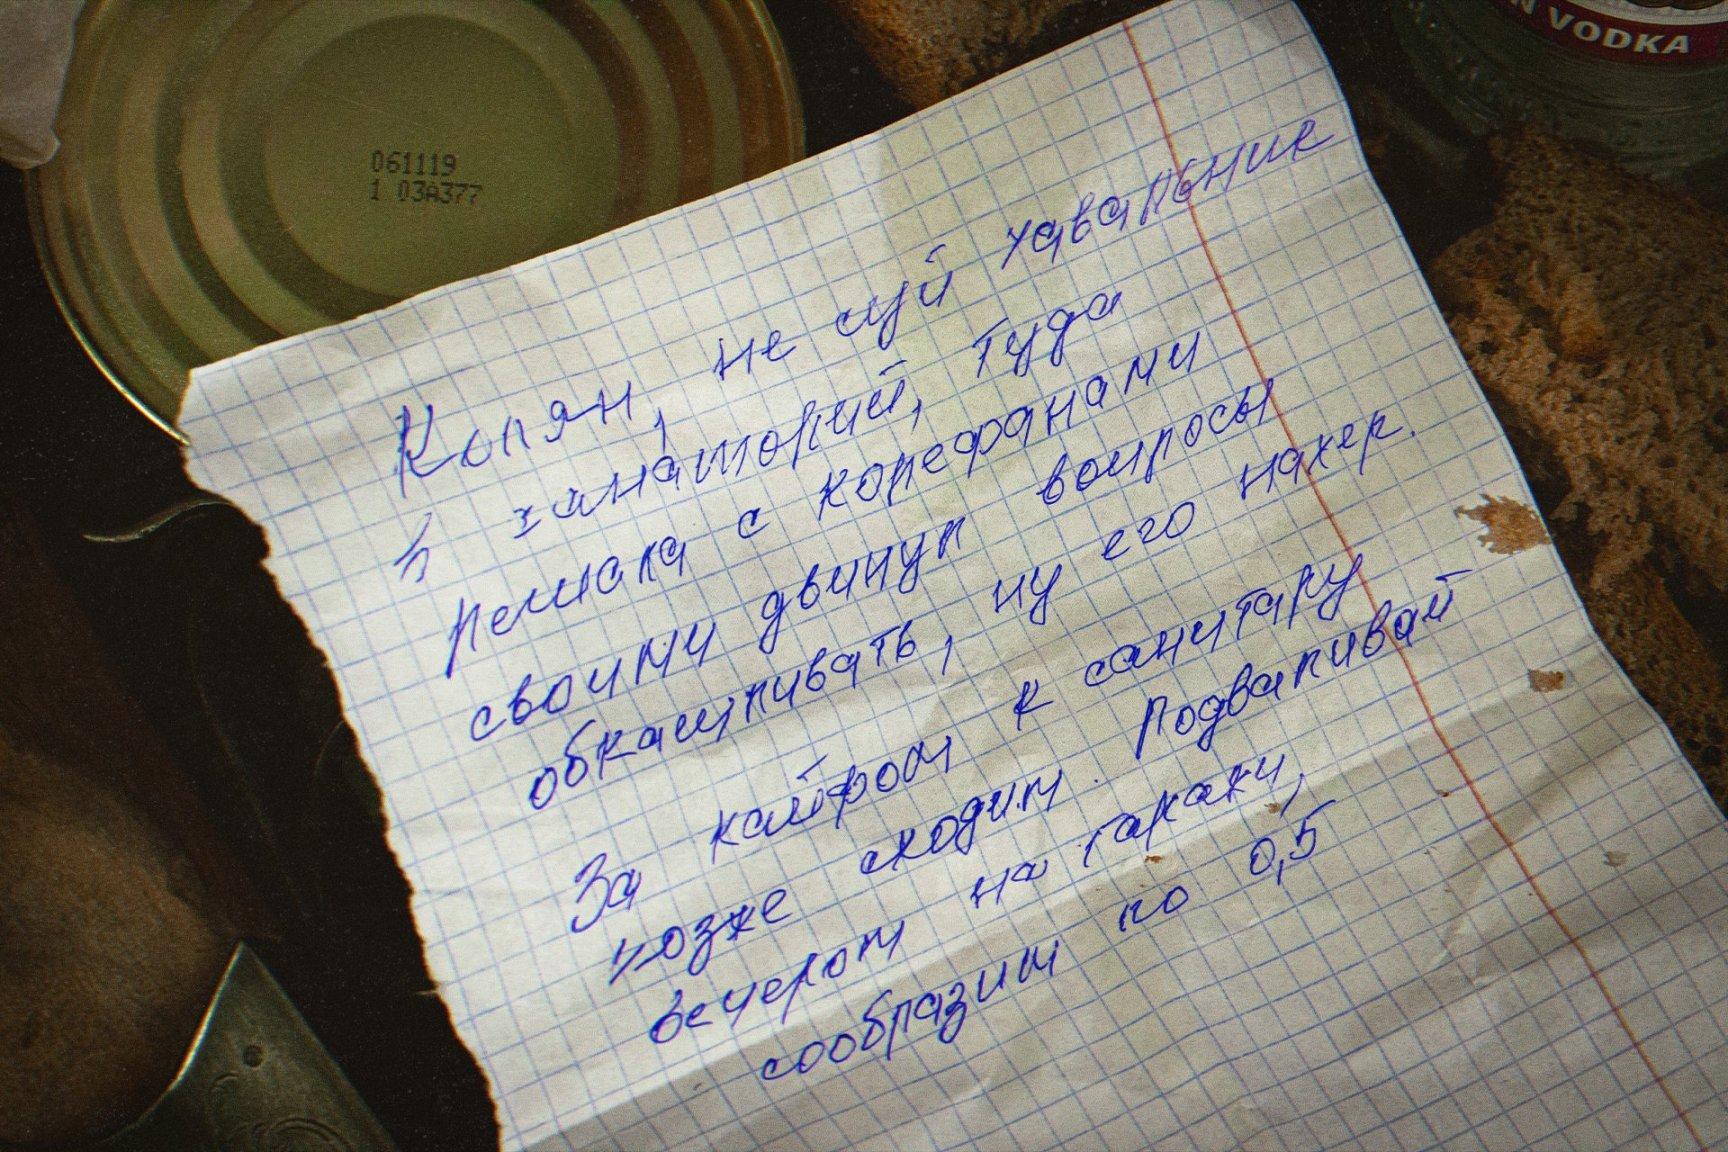 061119
1 03A377
N VODKA
Колян, не суй хавальник
в санаторий, туда
Лешака с корефанами
своими двинул вопросы
обкашливать, ну его нахер.
За кайфом к санитару
позже сходим. Подваливай
вечером на гаражи,
сообразим по 0,5